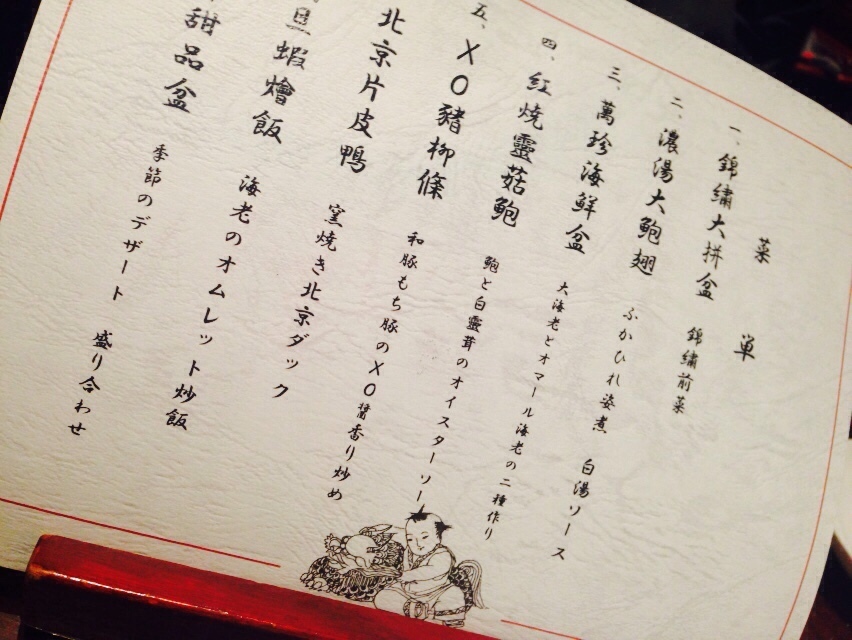 菜単
一、錦繡大拼盆
錦繡前菜
二、濃湯大鮑翅
ふかひれ姿煮 白湯ソース
三、萬珍海鮮盆
大海老とオマール海老の二種作り
四、紅焼靈菇鮑
鮑と白靈茸のオイスターソー
五、XO豬柳條
和豚もち豚のXO醤香り炒め
北京片皮鴨
窯焼き北京ダック
蝦燴飯
海老のオムレット炒飯
甜品盆
季節のデザート 盛り合わせ